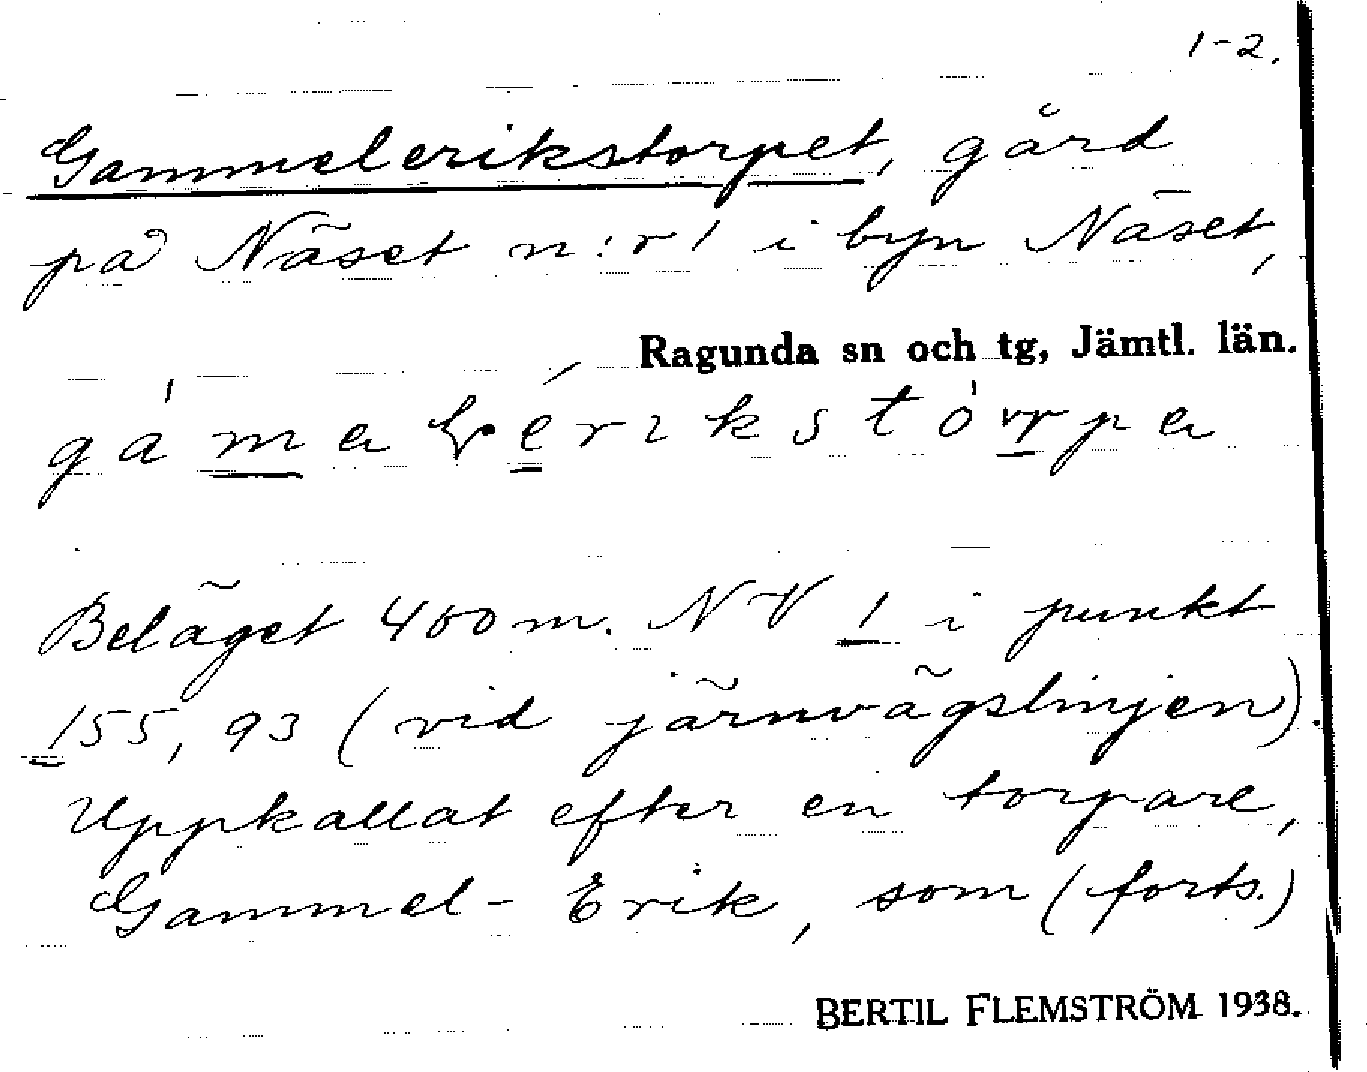 1-2.
Gammelerikstorpet, gård
på Näset n:r 1 i byn Näset,
Ragunda sn och tg, Jämtl. län.
Beläget 400 m. NV 1 i punkt
155,93 (vid järnvägslinjen).
Uppkallat efter en torpare,
Gammel-Erik, som (forts.)
BERTIL FLEMSTRÖM 1938.